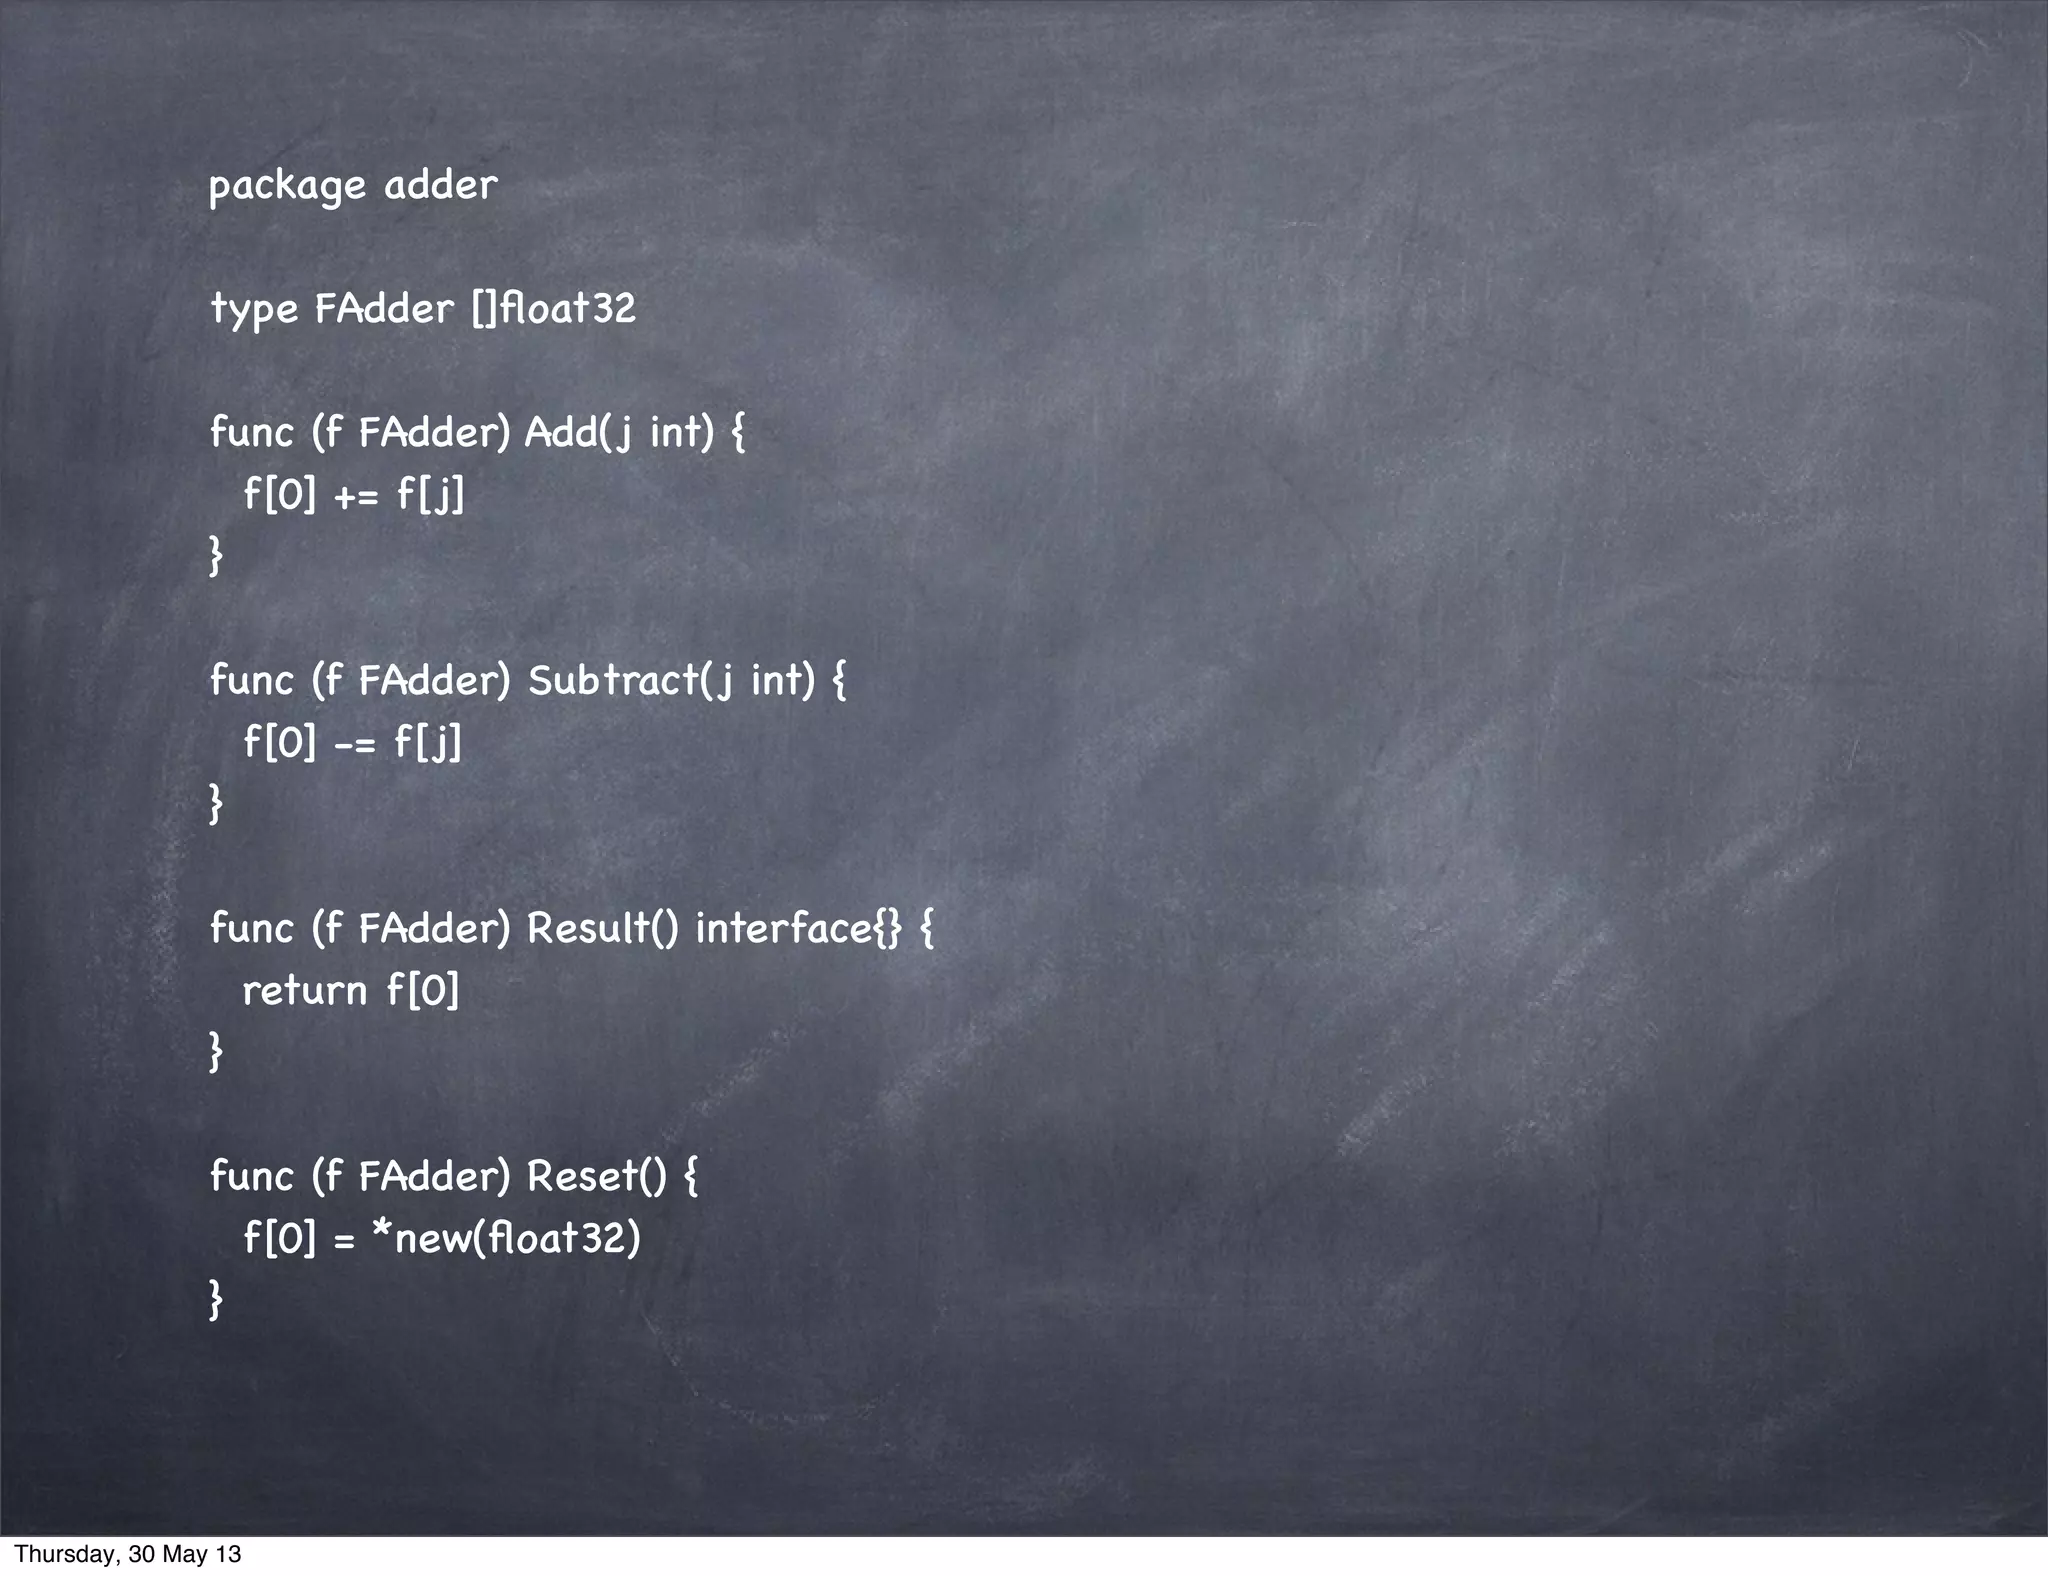 package adder
type FAdder []float32
func (f FAdder) Add(j int) {
f[0] += f[j]
}
func (f FAdder) Subtract(j int) {
f[0] -= f[j]
}
func (f FAdder) Result() interface{} {
return f[0]
}
func (f FAdder) Reset() {
f[0] = *new(float32)
}
Thursday, 30 May 13